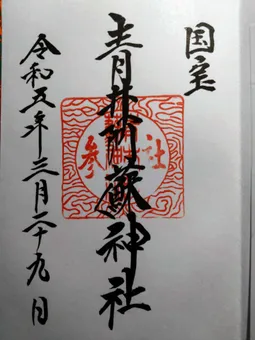 国宝
青井阿蘇神社
令和五年三月二十九日
参社